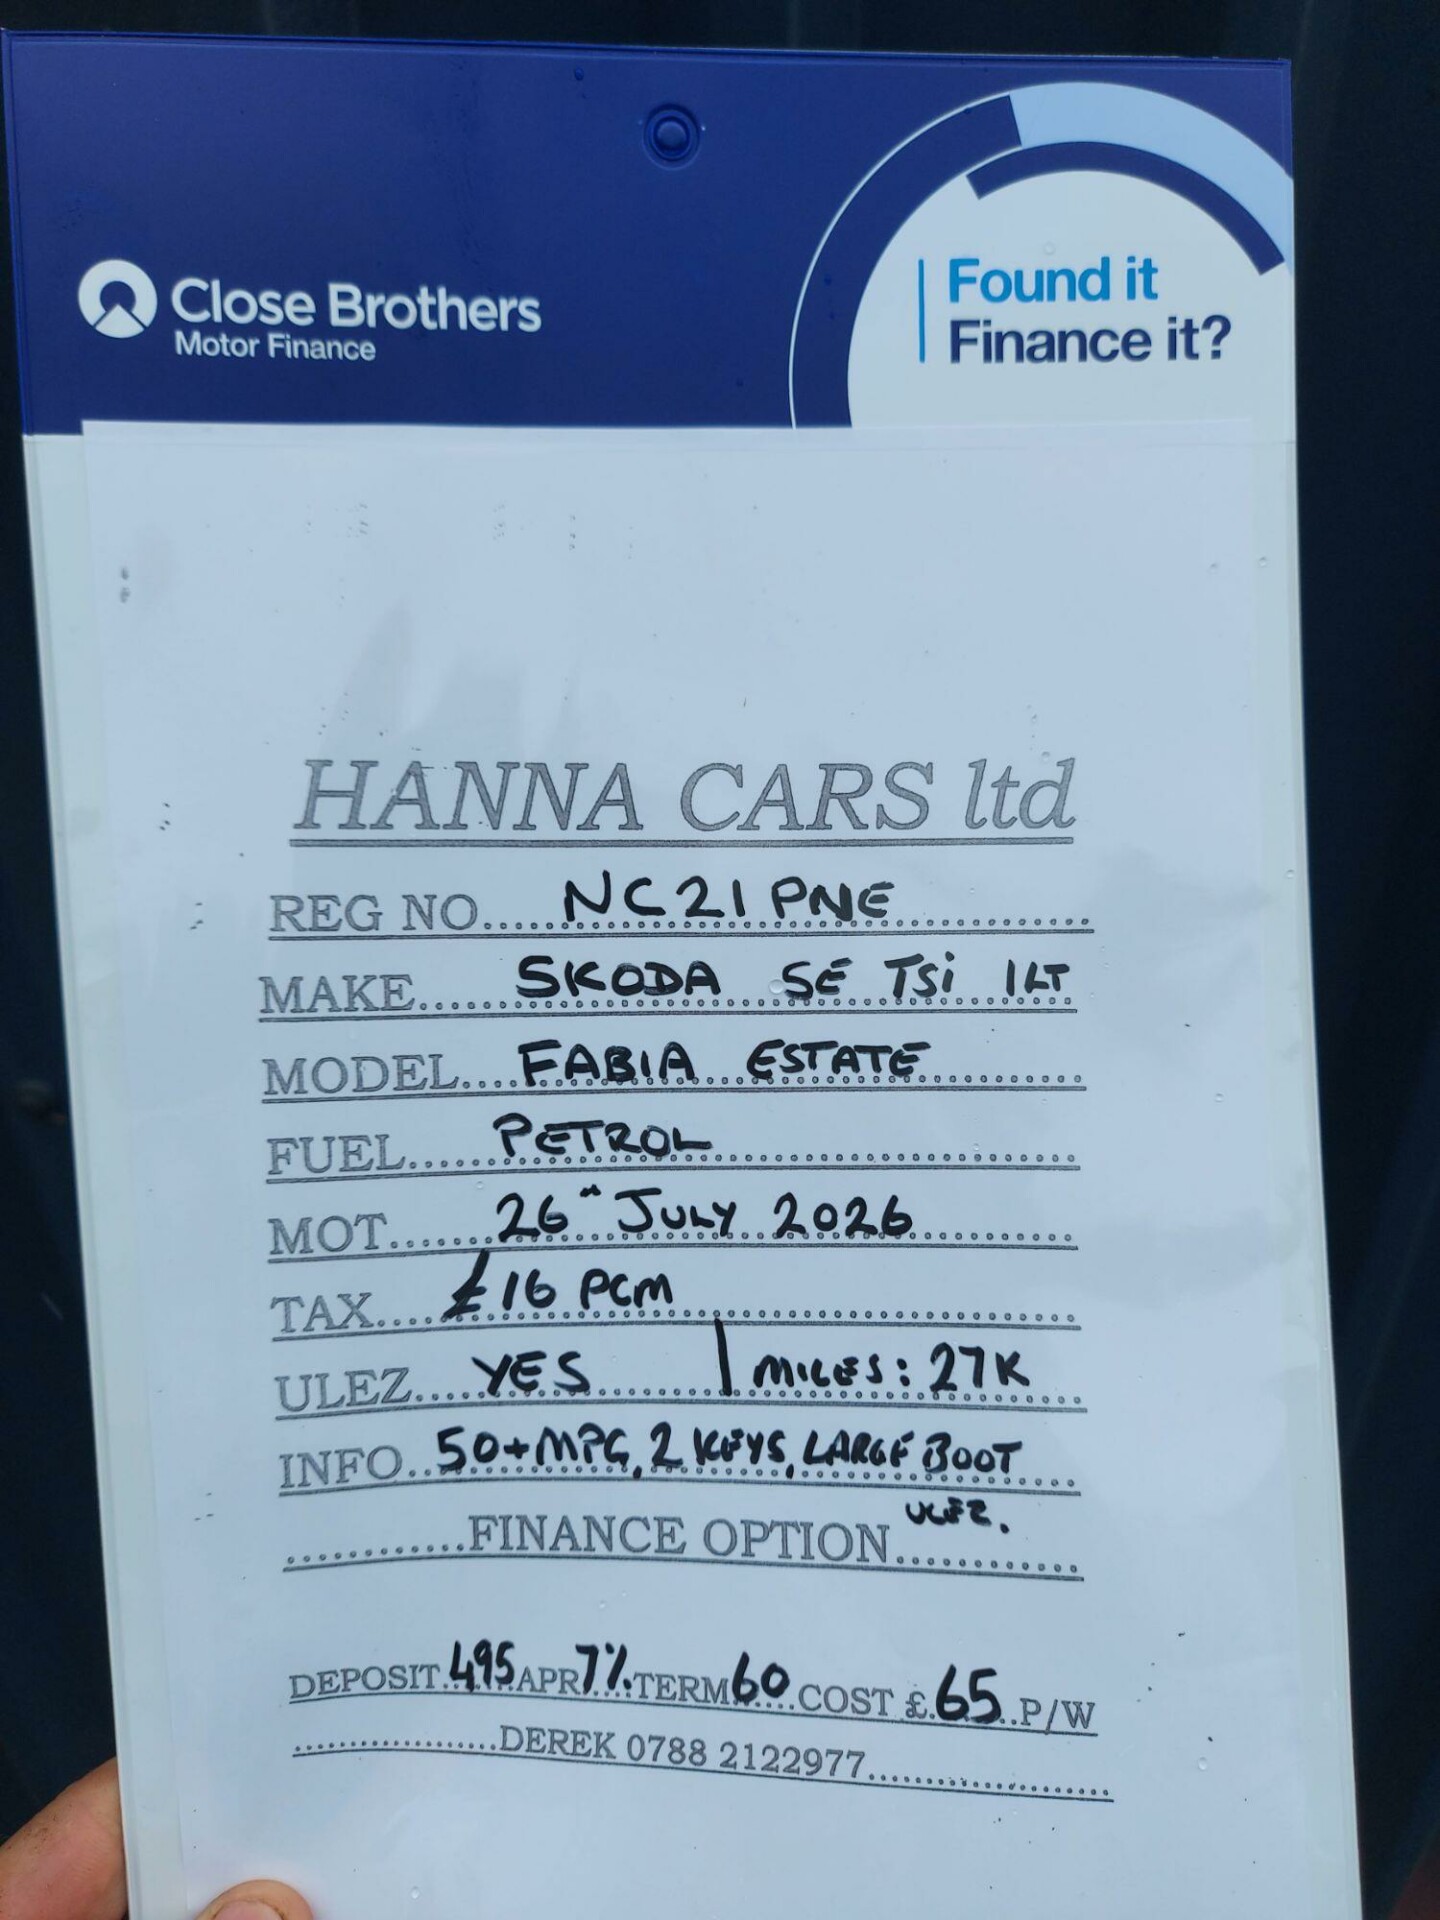 Close Brothers
Motor Finance
Found it
Finance it?
HANNA CARS ltd
REG NO.....NC21 PNE.....
MAKE.....SKODA SE TSi 1LT
MODEL....FABIA ESTATE.....
FUEL.....PETROL.....
MOT.....26th JULY 2026.....
TAX....£16 PCM.....
ULEZ....YES.....| MILES: 27K
INFO..50+MPG, 2 KEYS, LARGE BOOT
ULEZ.
............FINANCE OPTION............
DEPOSIT.495 APR 7% TERM 60 COST £.65..P/W
..................DEREK 0788 2122977......................